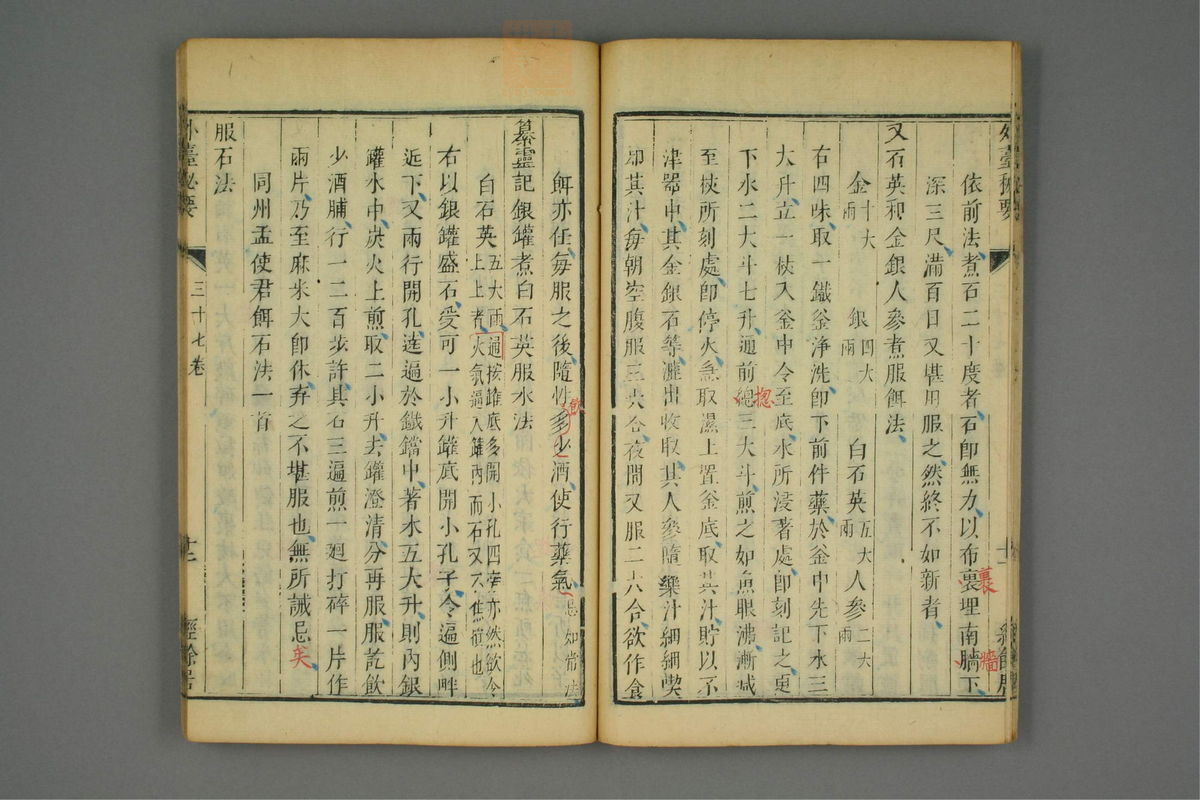 外臺秘要
依前法煮石二十度者石即無力以布裹埋南牆下
裹
牆
深三尺滿百日又堪用服之然終不如新者
又石英和金銀人參煮服餌法
金十大兩 銀四大兩 白石英五大兩 人參二大兩
右四味取一鐵釜淨洗即下前件藥於釜中先下水三
大升立一杖入釜中令至底水所浸著處即刻記之更
下水二大斗七升通前總三大斗煎之如魚眼沸漸減
揔
至杖所刻處即停火急取濕土置釜底取其汁貯以不
津器中其金銀石等漉出收取其人參隨藥汁細細喫
却其汁每朝空腹服三大合夜間又服二大合欲作食
餌亦任每服之後隨性多少酒使行藥氣忌如常法
飲
纂靈記銀罐煮白石英服水法
白石英五大兩上上者通按罐底多開小孔四旁亦然飲令火氣逼入罐內而石又不焦損也
右以銀罐盛石受可一小升罐底開小孔子令遍側畔
近下又兩行開孔遶遍於鐵鐺中著水五大升則內銀
罐水中炭火上煎取二小升去罐澄清分再服服訖飲
少酒脯行一二百步許其石三遍煎一迴打碎一片作
兩片乃至麻米大即休弃之不堪服也無所誡忌矣
同州孟使君餌石法一首
服石法
外臺秘要
三十七卷
十二
經餘居